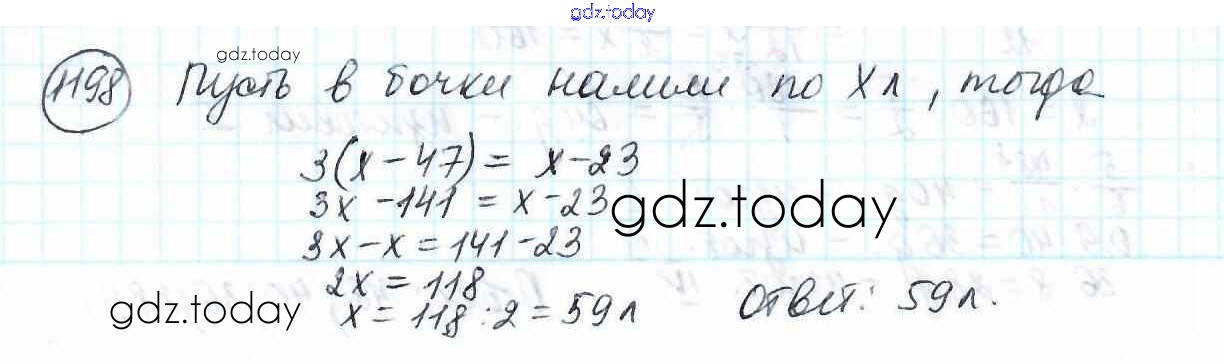 gdz.today
gdz.today
1198 Пусть в бочки налили по х л, тогда
3(х - 47) = х - 23
3х - 141 = х - 23
gdz.today
3х - х = 141 - 23
2х = 118
gdz.today
х = 118 : 2 = 59 л Ответ: 59 л.